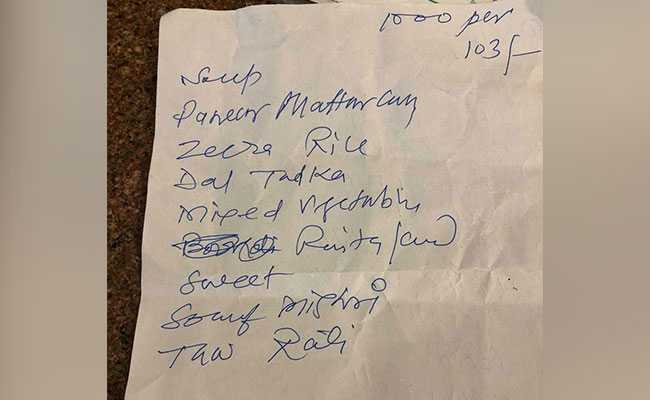 1000 per
103/-
Soup
Paneer Mattar
Zeera Rice
Dal Tadka
Mixed Vegetables
Raita
Sweet
Sounf Mishri
Roti